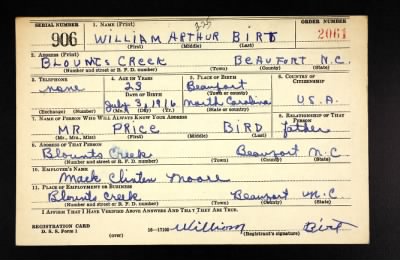 SERIAL NUMBER 1. NAME (Print) ORDER NUMBER
906 WILLIAM ARTHUR BIRT 2061
(First) (Middle) (Last)
2. ADDRESS (Print)
BLOUNTS CREEK BEAUFORT N.C.
(Number and street or R. F. D. number) (Town) (County) (State)
3. TELEPHONE 4. AGE IN YEARS 5. PLACE OF BIRTH 6. COUNTRY OF CITIZENSHIP
none 25 Beaufort
DATE OF BIRTH (Town or county)
July 3, 1916 North Carolina U.S.A.
(Exchange) (Number) (Mo.) (Day) (Yr.) (State or country)
7. NAME OF PERSON WHO WILL ALWAYS KNOW YOUR ADDRESS 8. RELATIONSHIP OF THAT PERSON
MR. PRICE BIRD father
(Mr., Mrs., Miss) (First) (Middle) (Last)
9. ADDRESS OF THAT PERSON
Blounts Creek Beaufort N.C.
(Number and street or R. F. D. number) (Town) (County) (State)
10. EMPLOYER'S NAME
Mack Clinton Moore
11. PLACE OF EMPLOYMENT OR BUSINESS
Blounts Creek Beaufort N.C.
(Number and street or R. F. D. number) (Town) (County) (State)
I AFFIRM THAT I HAVE VERIFIED ABOVE ANSWERS AND THAT THEY ARE TRUE.
REGISTRATION CARD
D. S. S. Form 1 16—17105 William Birt
(Registrant's signature)